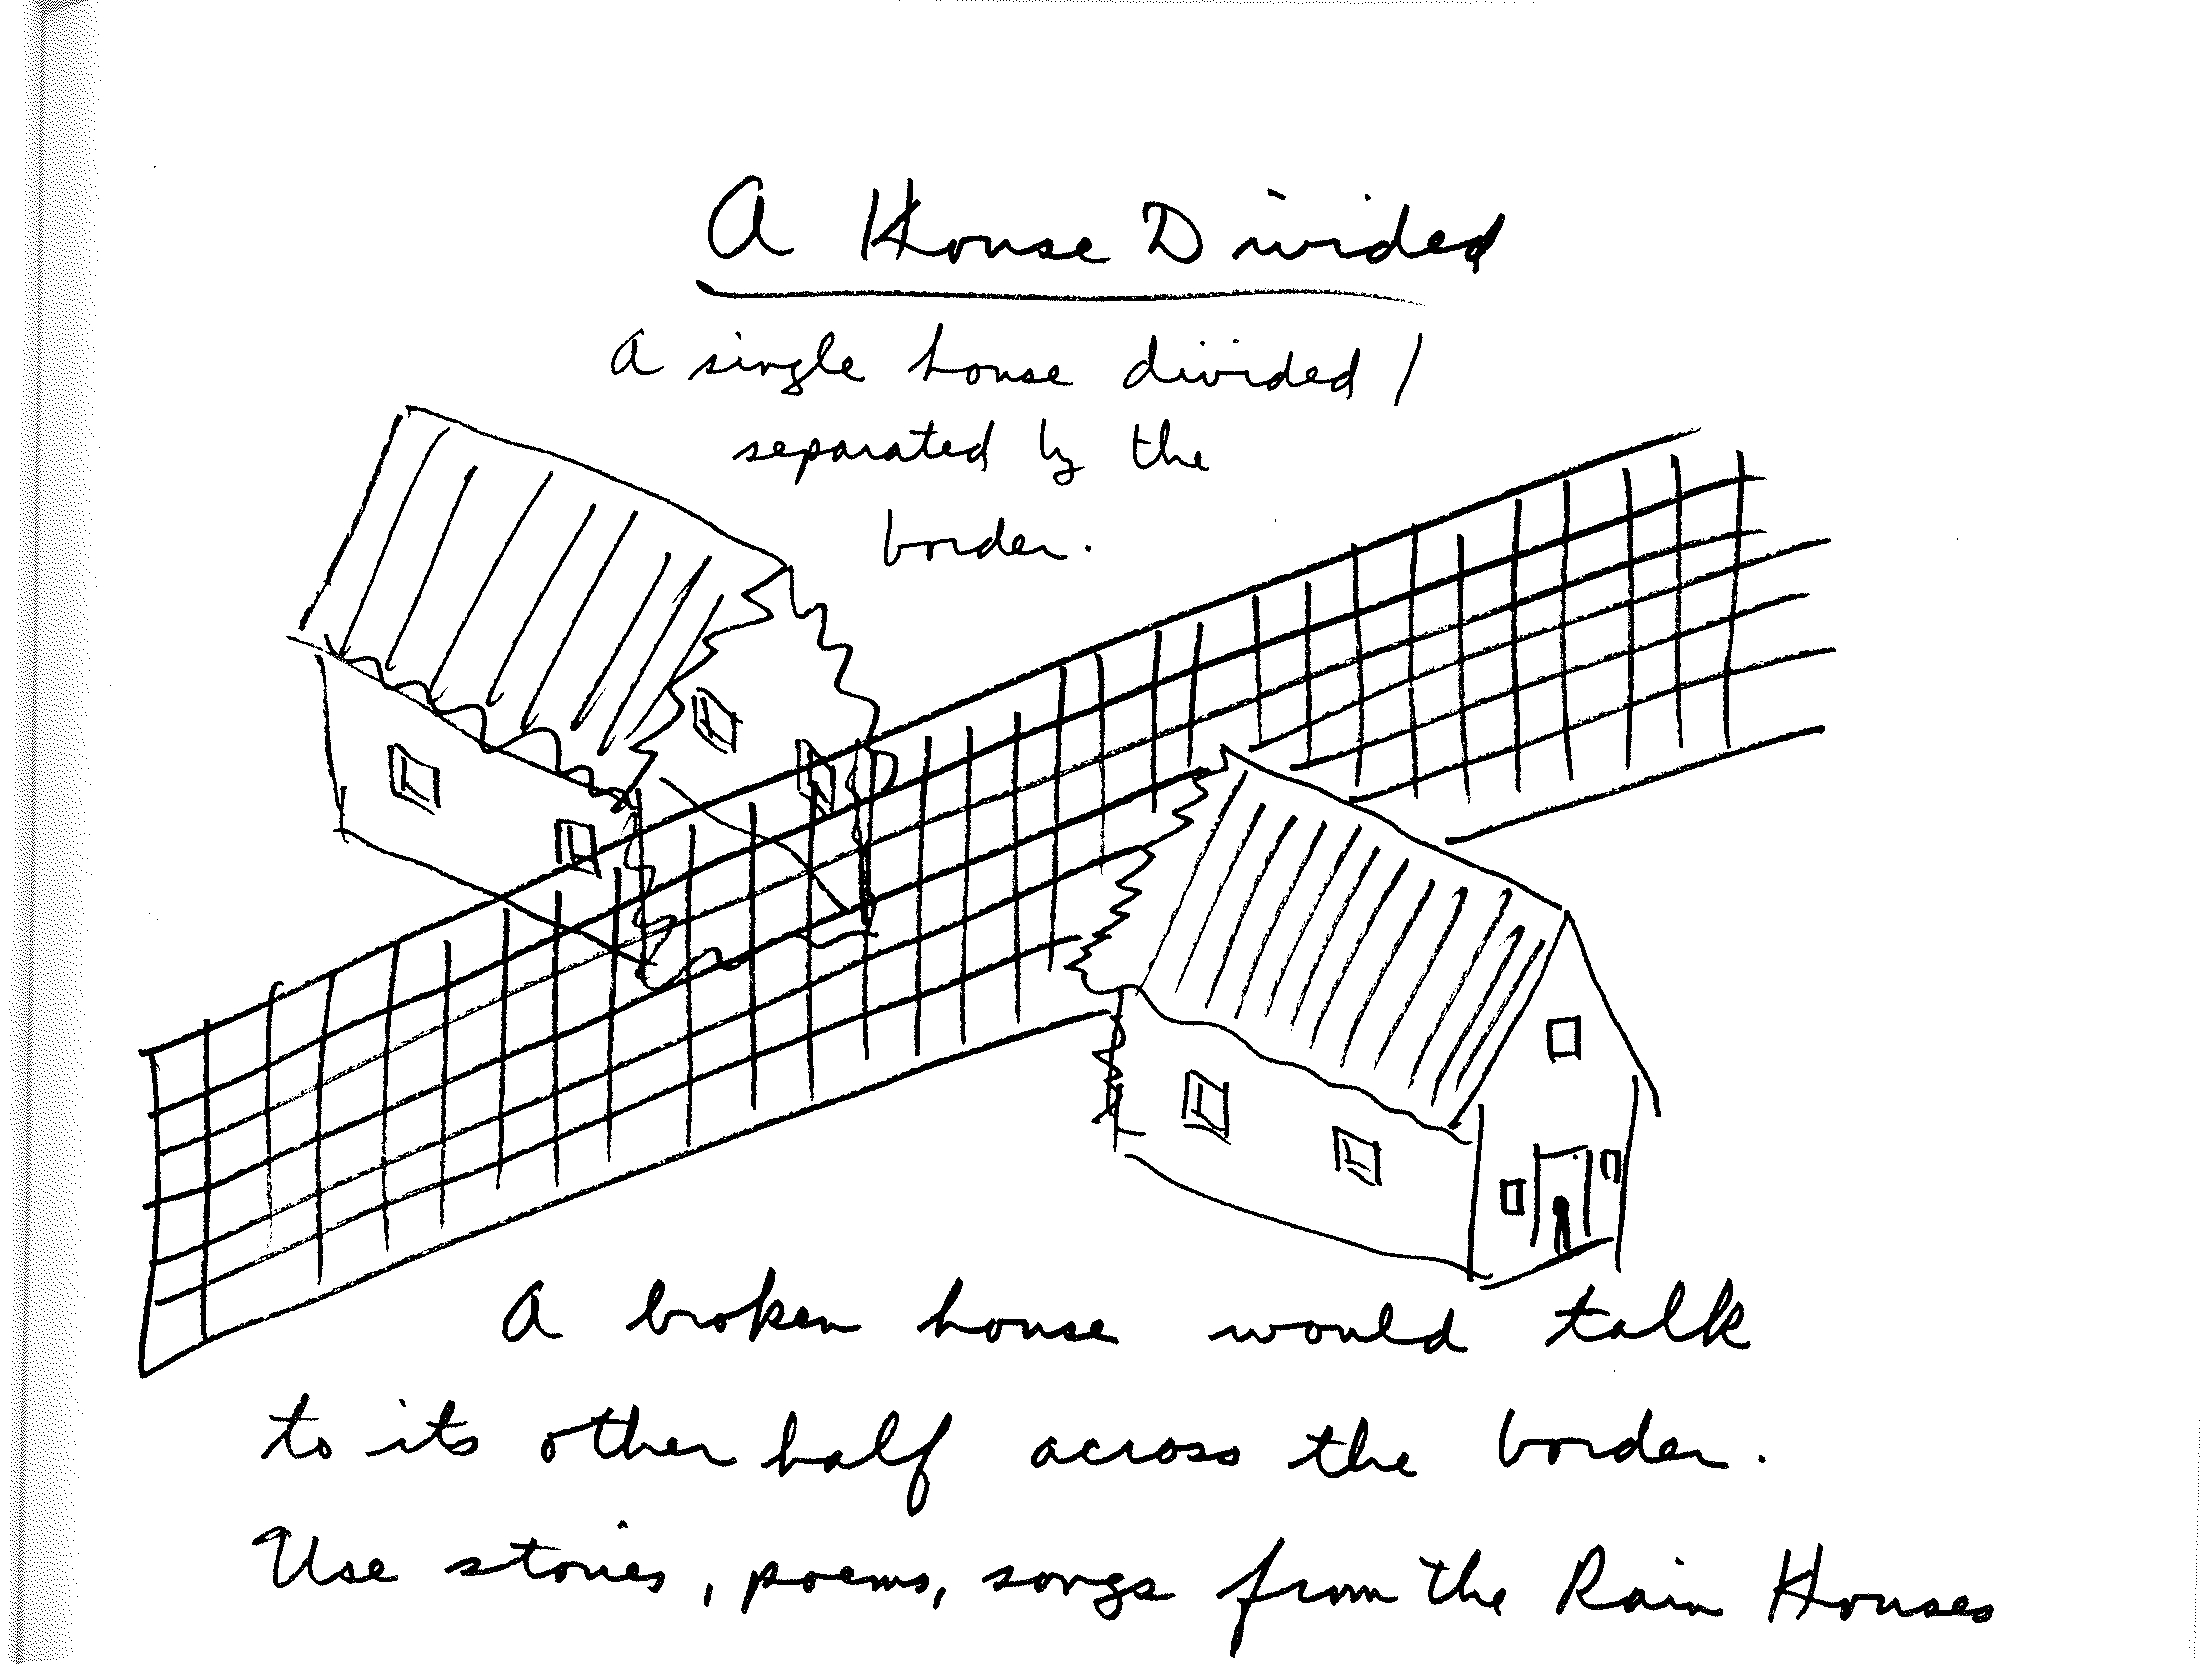 A House Divided
A single house divided /
separated by the
border.
A broken house would talk
to its other half across the border.
Use stories, poems, songs from the Rain Houses